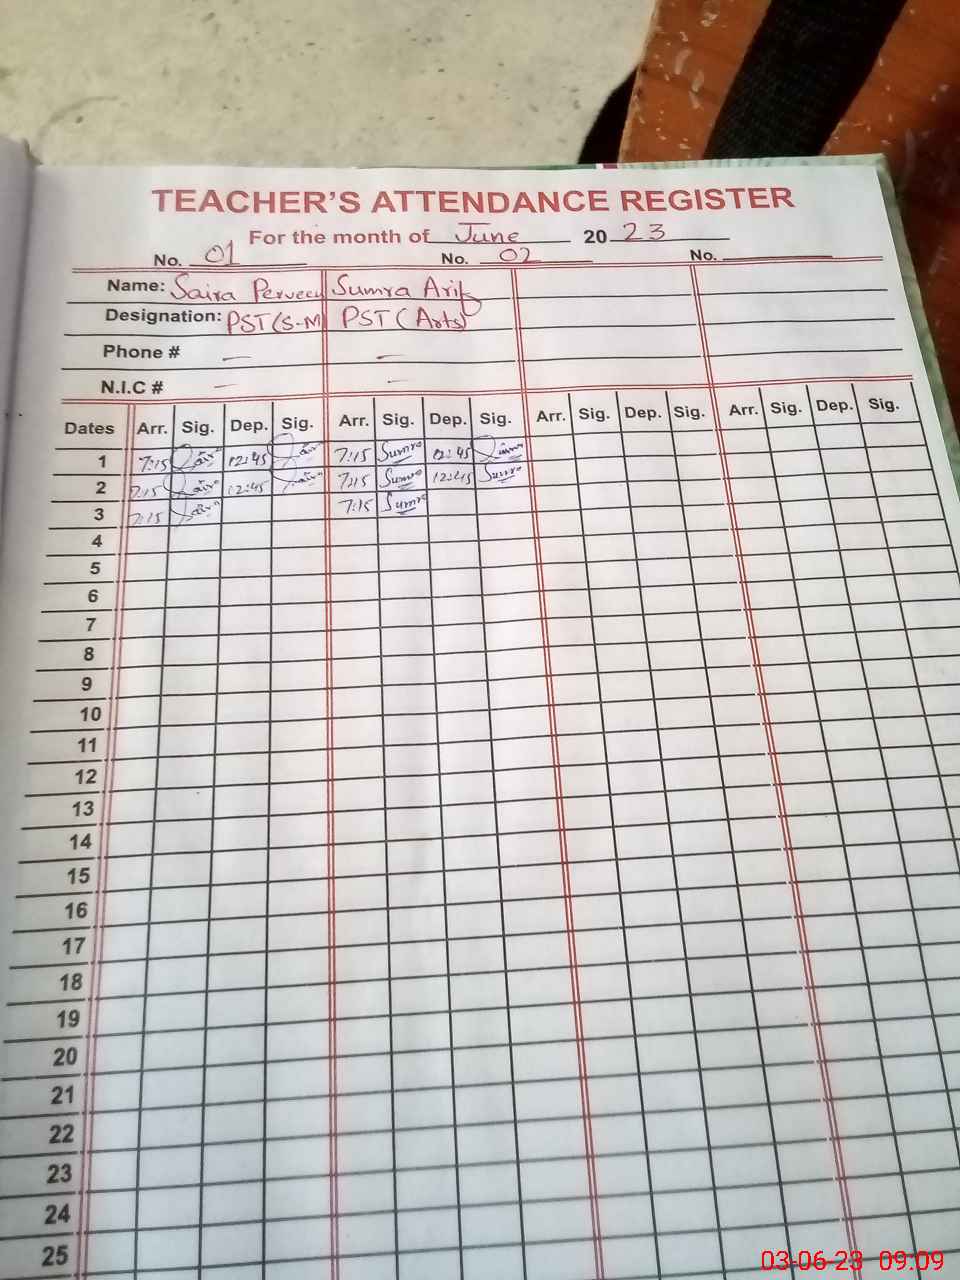 TEACHER'S ATTENDANCE REGISTER
For the month of June 2023
No. 01 No. 02 No.
Name: Saira Perveen Sumra Arif
Designation: PST (S-M) PST (Arts)
Phone # — —
N.I.C # — —
Dates Arr. Sig. Dep. Sig. Arr. Sig. Dep. Sig. Arr. Sig. Dep. Sig. Arr. Sig. Dep. Sig.
1 7:15 Saira 12:45 Saira 7:15 Sumra 12:45 Sumra
2 7:15 Saira 12:45 Saira 7:15 Sumra 12:45 Sumra
3 7:15 Saira 7:15 Sumra
4
5
6
7
8
9
10
11
12
13
14
15
16
17
18
19
20
21
22
23
24
25
03-06-23 09:09